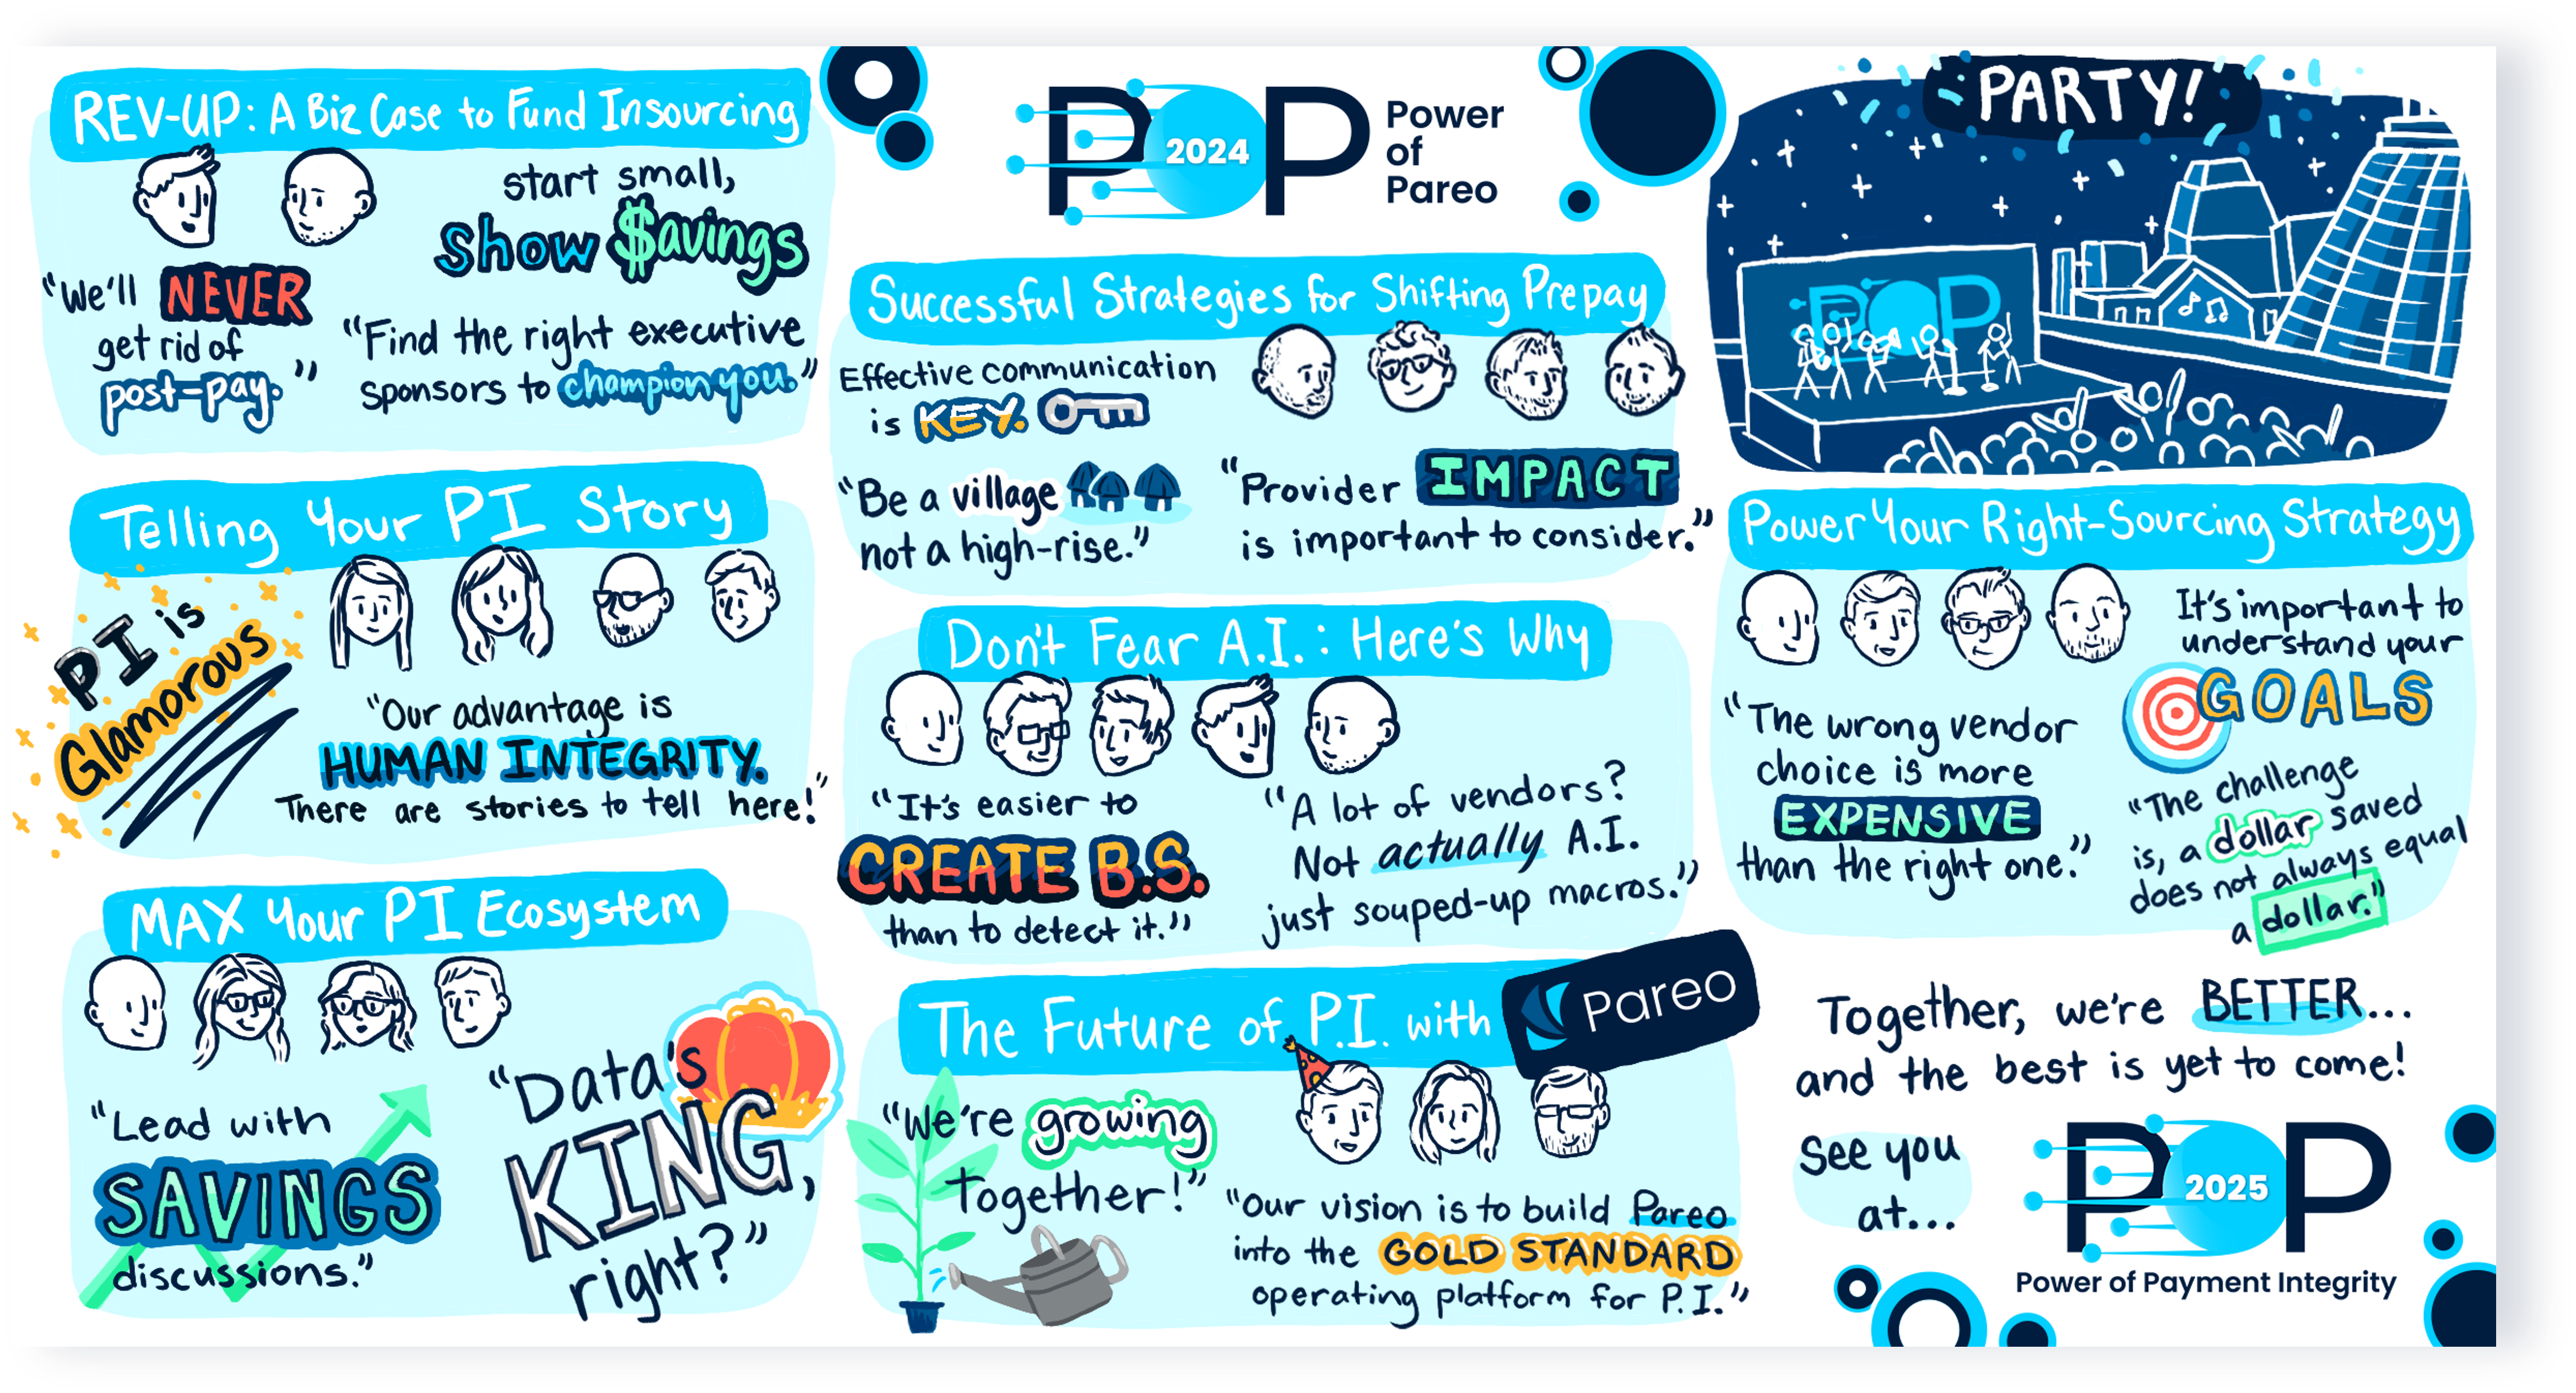 REV-UP: A Biz Case to Fund Insourcing
start small,
Show $avings
"We'll NEVER
get rid of
post-pay."
"Find the right executive
sponsors to champion you."
Telling Your PI Story
PI is
Glamorous
"Our advantage is
HUMAN INTEGRITY.
There are stories to tell here!"
MAX Your PI Ecosystem
"Lead with
SAVINGS
discussions."
"Data's
KING,
right?"
POP
2024
Power
of
Pareo
Successful Strategies for Shifting Prepay
Effective communication
is KEY.
"Be a village
not a high-rise."
"Provider IMPACT
is important to consider."
Don't Fear A.I.: Here's Why
"It's easier to
CREATE B.S.
than to detect it."
"A lot of vendors?
Not actually A.I.
just souped-up macros."
The Future of P.I. with Pareo
"We're growing
together!"
"Our vision is to build Pareo
into the GOLD STANDARD
operating platform for P.I."
PARTY!
POP
Power Your Right-Sourcing Strategy
It's important to
understand your
GOALS
"The wrong vendor
choice is more
EXPENSIVE
than the right one."
"The challenge
is, a dollar saved
does not always equal
a dollar."
Together, we're BETTER...
and the best is yet to come!
See you
at...
POP
2025
Power of Payment Integrity